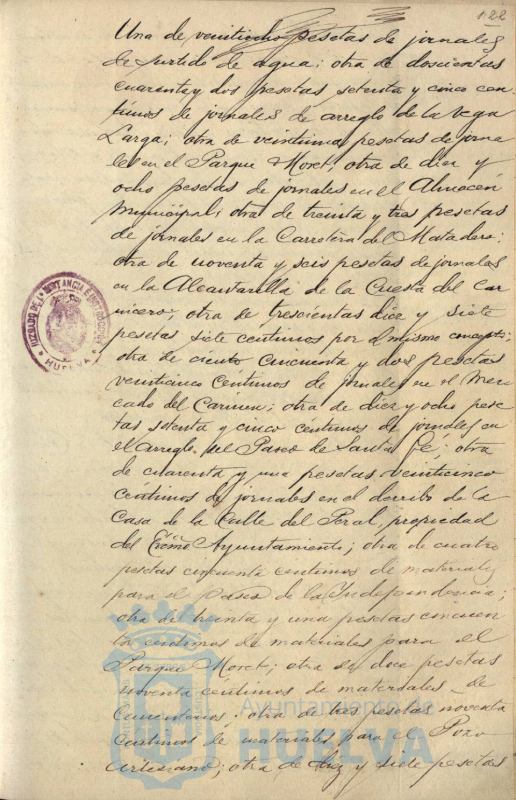 122
Una de veintiocho pesetas de jornales
de surtido de agua; otra de doscientas
cuarenta y dos pesetas setenta y cinco cen
timos de jornales de arreglo de la Vega
Larga; otra de veintiuna pesetas de jorna
les en el Parque Moret; otra de diez y
ocho pesetas de jornales en el Almacén
Municipal; otra de treinta y tres pesetas
de jornales en la Carretera del Matadero;
otra de noventa y seis pesetas de jornales
en la Alcantarilla de la Cuesta del Car
nicero; otra de trescientas diez y siete
pesetas siete centimos por el mismo concepto;
otra de ciento cincuenta y dos pesetas
veinticinco céntimos de jornales en el Mer
cado del Carmen; otra de diez y ocho pese
tas setenta y cinco céntimos de jornales en
el arreglo del Paseo de Santa Fé; otra
de cuarenta y una pesetas veinticinco
céntimos de jornales en el derribo de la
Casa de la Calle del Peral, propiedad
del Excmo Ayuntamiento; otra de cuatro
pesetas cincuenta centimos de materiales
para el Paseo de la Independencia;
otra de treinta y una pesetas cincuen
ta centimos de materiales para el
Parque Moret; otra de doce pesetas
noventa céntimos de materiales de
Cementerios; otra de tres pesetas noventa
centimos de materiales para el Pozo
artesiano; otra de diez y siete pesetas
JUZGADO DE 1ª INSTANCIA E INSTRUCCION
HUELVA
Ayuntamiento de
HUELVA